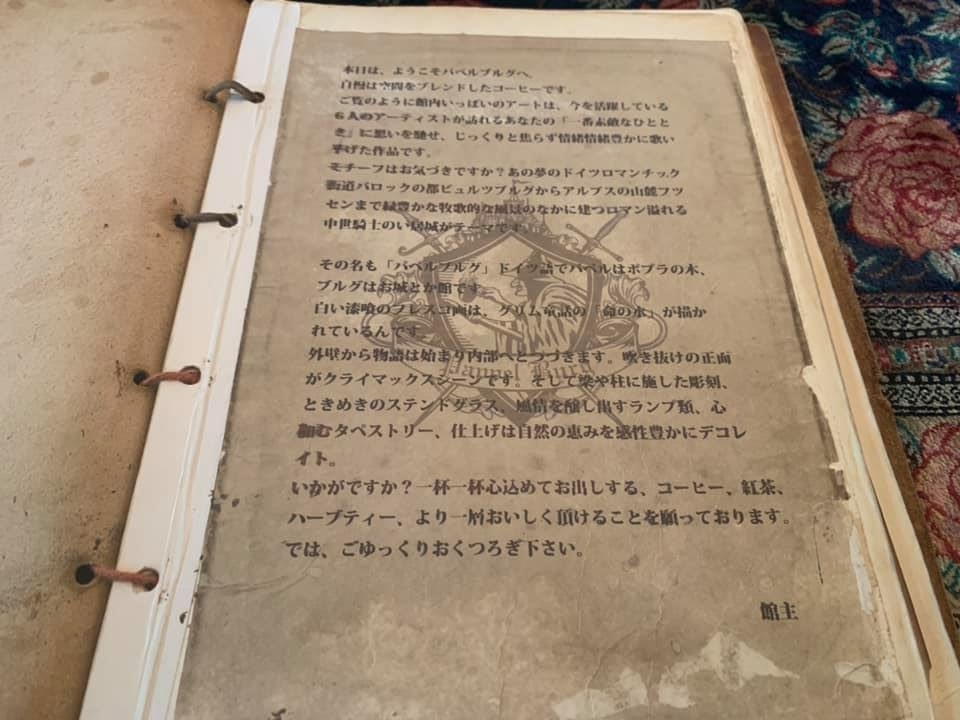 本日は、ようこそパペルブルグへ。
自慢は空間をブレンドしたコーヒーです。
ご覧のように館内いっぱいのアートは、今を活躍している
6人のアーティストが訪れるあなたの「一番素敵なひとと
き」に想いを馳せ、じっくりと焦らず情緒情緒豊かに歌い
挙げた作品です。
モチーフはお気づきですか?あの夢のドイツロマンチック
街道バロックの都ビュルツブルグからアルプスの山麓フツ
センまで緑豊かな牧歌的な風景のなかに建つロマン溢れる
中世騎士のい居城がテーマです。
その名も「パペルブルグ」ドイツ語でパペルはポプラの木、
ブルグはお城とか館です。
白い漆喰のフレスコ画は、グリム童話の「命の水」が描か
れているんです。
外壁から物語は始まり内部へとつづきます。吹き抜けの正面
がクライマックスシーンです。そして梁や柱に施した彫刻、
ときめきのステンドグラス、風情を醸し出すランプ類、心
和むタペストリー、仕上げは自然の恵みを感性豊かにデコレ
イト。
いかがですか?一杯一杯心込めてお出しする、コーヒー、紅茶、
ハーブティー、より一層おいしく頂けることを願っております。
では、ごゆっくりおくつろぎ下さい。
館主